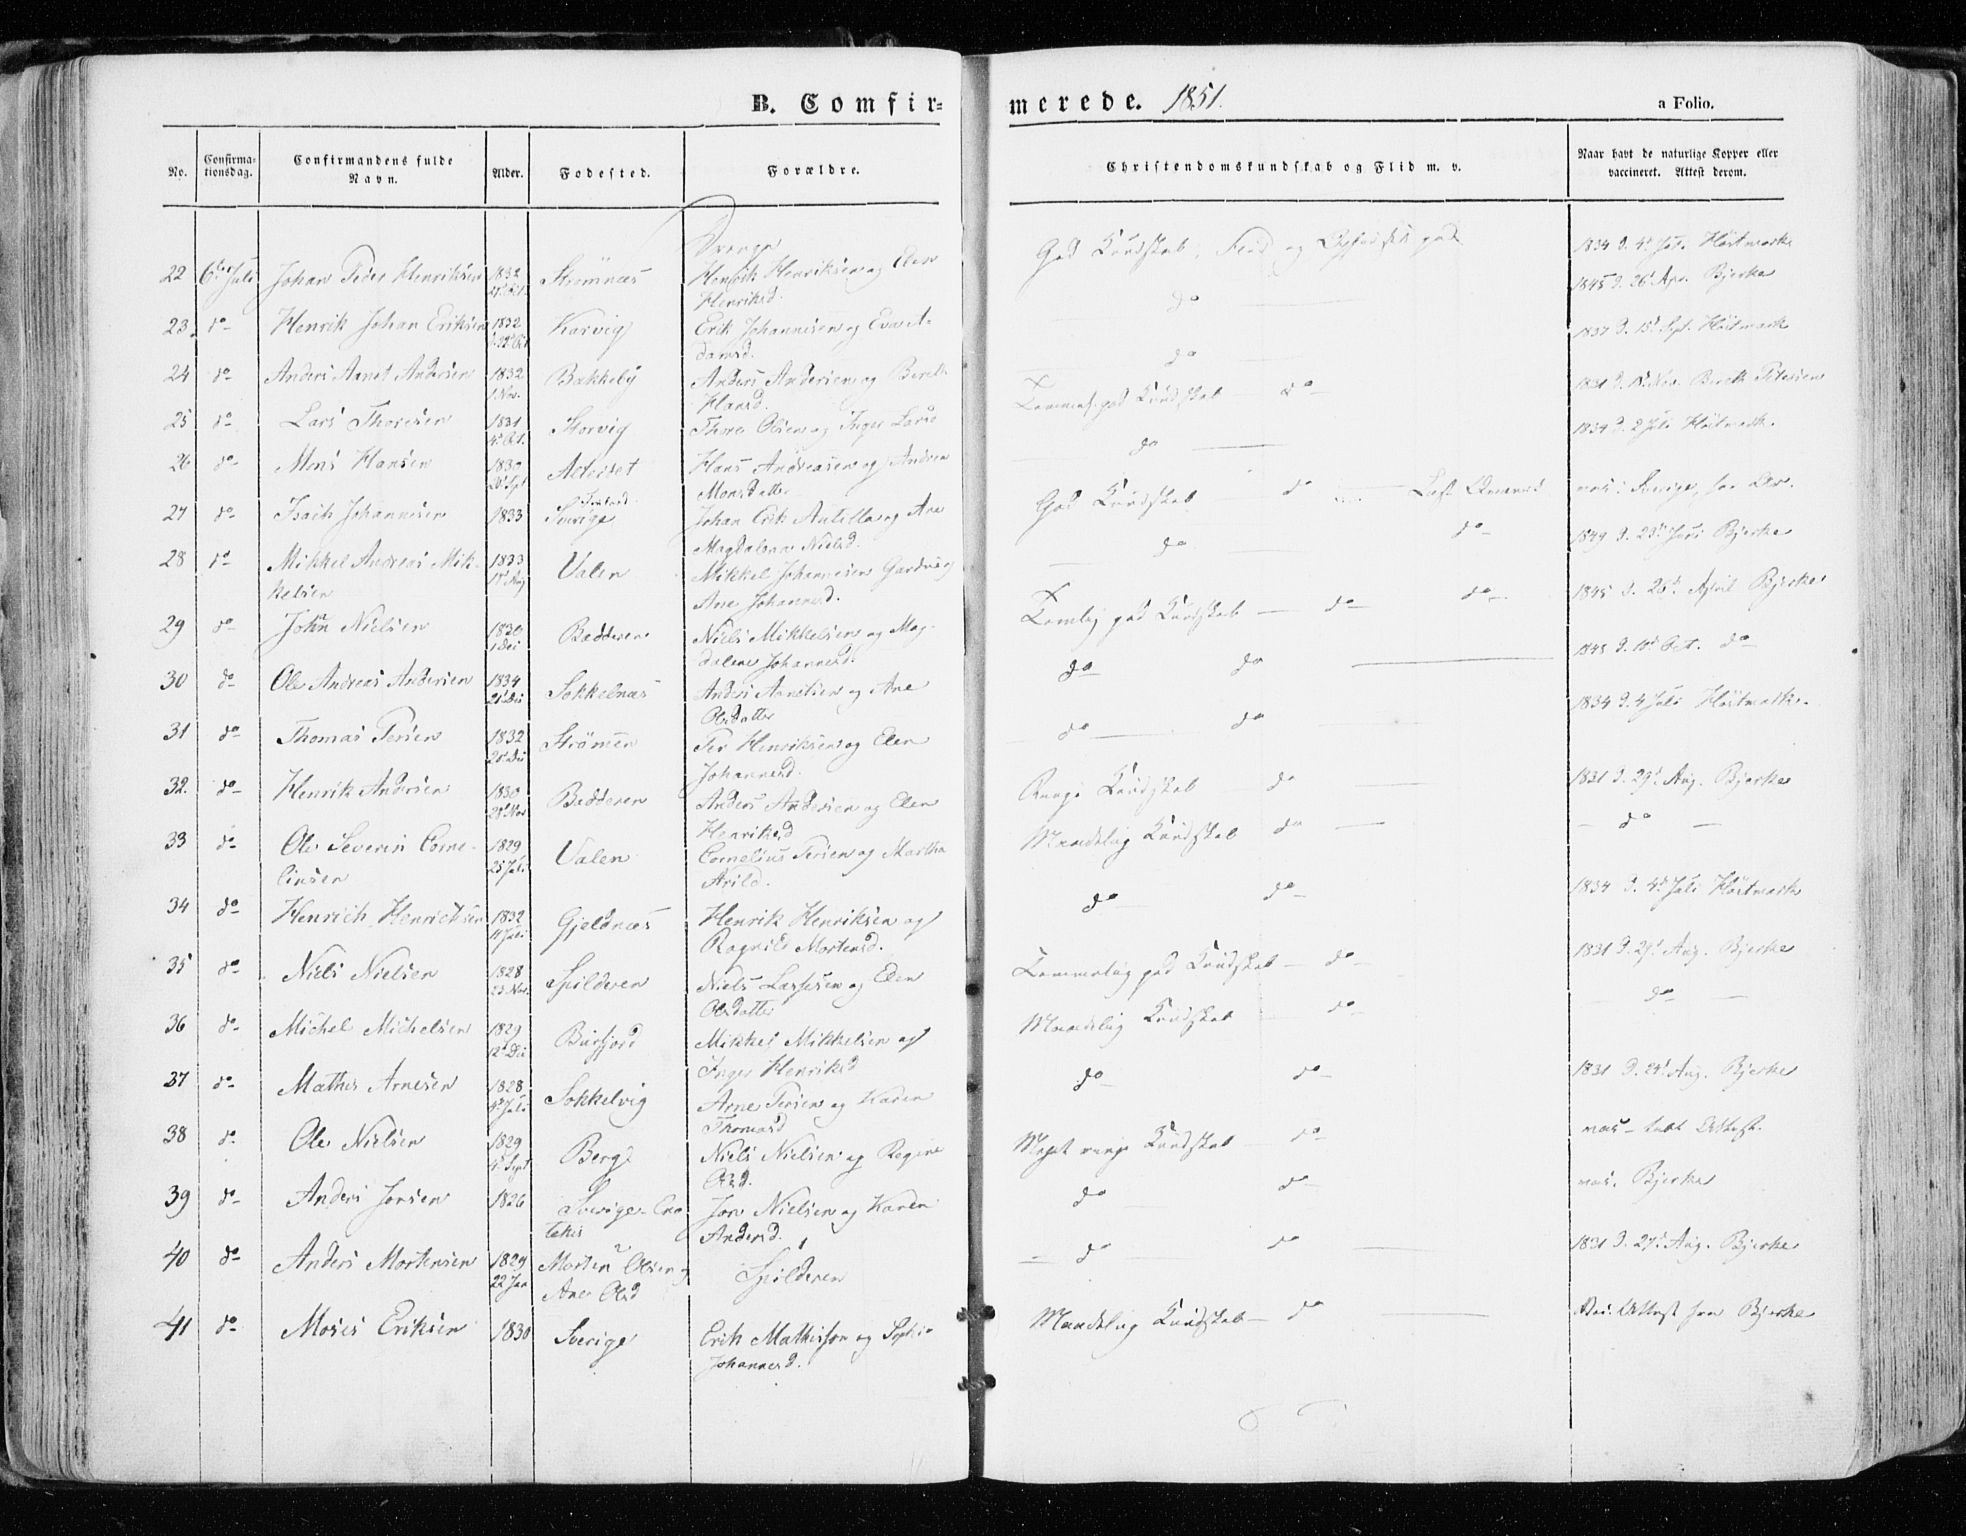 B. Comfir-
merede. 1851.
a Folio.
No.
Confirma-
tionsdag.
Confirmandens fulde
Navn.
Alder.
Fødested.
Forældre.
Christendomskundskab og Flid m. v.
Naar havt de naturlige Kopper eller
vaccineret. Attest derom.
Drenge
22 6te Juli Johan Peder Henriksen 1832 Strömnæs Henrik Henriksen og Elen
Henriksd.
God Kundskab, Flid og Opførsel god 1834 d. 4de Juli Höstmark
23 do Henrik Johan Eriksen 1832 Korvig Erik Johannesen og Eva A-
damsd.
do 1845 d. 26 Apr. Bjerke
24 do Anders Arnt Andersen 1832 Bakkeby Anders Andersen og Berit
1 Nov. Hansd.
do 1837 d. 15 Sept. Höstmark
25 do Lars Thoresen 1831 Storvig Thore Olsen og Inger Larsd
4 Oct.
god Kundskab do 1831 d. 18 Nov. Berith Petersen
26 do Mons Hansen 1830 Hans Andreasen og Andrea
20 Sept Monsdatter
do 1834 d. 2 Juli Höstmark.
27 do Isach Johannesen 1833 Sverige Johan Erik Antilla og Ane
Magdalena Nielsd.
God Kundskab do
28 do Mikkel Andreas Mik- 1833 Valen Mikkel Johannesen og
kelsen Ane Johannesd.
do do 1849 d. 23 Juni Bjerke
29 do John Nielsen 1830 Badderen Niels Mikkelsen og Mag-
dalene Johannesd.
Temlig god Kundskab do do 1845 d. 26 April Bjerke
30 do Ole Andreas Andersen 1834 Sokkelnæs Anders Arnetsen og Ane
Olsdatter
do do 1845 d. 10 Oct. do
31 do Thomas Persen 1832 Strömen Per Henriksen og Elen
Johannesd.
do do 1834 d. 4 Juli Höstmark.
32. do Henrik Andersen 1830 Badderen Anders Andersen og Elen
28 Nov Henriksd
Ringe Kundskab do 1831 d. 29 Aug. Bjerke
33 do Ole Severin Corne- 1829 Valen Cornelius Persen og Martha
liusen 25 Juli Arild.
Maadelig Kundskab do do
34 do Henrich Henrichsen 1832 Gjeldnæs Henrik Henriksen og
11 Juli Ragnild Mortensd.
do do 1834 d. 4de Juli Höstmark
35 do Niels Nielsen 1828 Spilderen Niels Larssen og Elen
23 Nov. Olsdatter
god Kundskab do 1831 d. 29 Aug. Bjerke
36 do Michel Michelsen 1829 Burfjord Mikkel Mikkelsen og
Inger Henriksd
Maadelig Kundskab do do
37 do Mathis Arnesen 1828 Sokkelvig Arne Persen og Karen
4 Juli Thomasd
do do 1831 d. 29 Aug. Bjerke
38 do Ole Nielsen 1829 Berg Niels Nielsen og Regine
Sept Olsd.
Meget ringe Kundskab do vac. Attest.
39 do Anders Jonsen 1826 Sverige Jon Nielsen og Karen
Andersd.
do do vac. Bjerke
40 do Anders Mortensen 1829 Morten Olsen og Spilderen
22 Jan Ane Olsd
do do 1831 d. 27 Aug. Bjerke
41 do Moses Eriksen 1830 Sverige Erik Mathisson og Sophie
Johannesd.
Maadelig Kundskab do Vac. Attest fra Bjerke